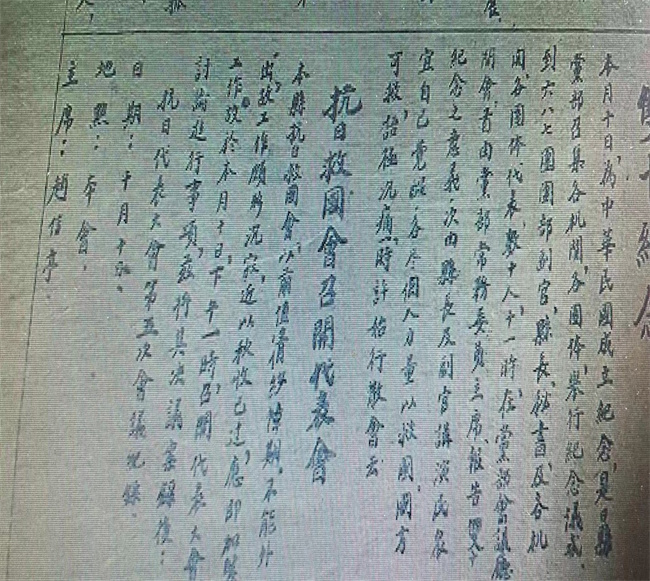 本月十日，為中華民國成立紀念，是日縣
黨部召集各機関各團体，舉行紀念議式，
到六八七團團部副官，縣長，秘書，及各机
関，各团体代表，數十人，十一時，在黨部會議廳
開會，首由黨部常務委員主席，報告畢，
紀念之意義，次由縣長及副官講演民衆
宜自己覺醒，各尽個人力量以救國，國方
可救，語極沉痛，時許始行散會云
抗日救國會召開代表會
本縣抗日救國會，以前值青紗幛期，不能外
出，故工作頗為沉寂，近以秋收已过，應即加緊
工作，故於本月十日，下午一時，召開代表大會
討論進行事項，茲將其決議案錄後：
抗日代表大會第五次會議記錄，
日期：十月十日，
地點：本會，
主席：趙信亭，